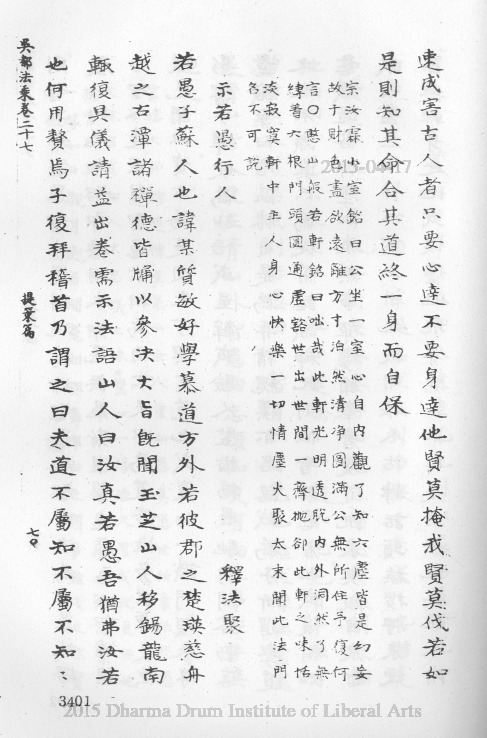 速成害古人者只要心達不要身達他賢莫掩我賢莫伐若如
是則知其命合其道終一身而自保
宗汝霖小室銘曰公坐一室心自內觀了知六塵皆是幻妄
故于財色盡欲遠離方寸泊然清淨圓滿公無所住予復何
言○憨山般若軒銘曰咄哉此軒光明透脫內外洞然了無
縴翳六根門頭圓通虛豁世出世間一齊抛卻此軒之味恬
淡寂寞軒中主人身心快樂一切情塵大聚太末聞此法門
名不可說
示若愚行人 釋法聚
若愚子蘇人也諱某質敏好學慕道方外若彼郡之楚瑛慈舟
越之古渾諸禪德皆牖以參決大旨旣聞玉芝山人移錫龍南
輒復具儀請益出卷需示法語山人曰汝真若愚吾猶弗汝若
也何用贅焉子復拜稽首乃謂之曰夫道不屬知不屬不知:
吳都法乘卷二十七
提葉篇
七〇
3401
2015-04-17
2015 Dharma Drum Institute of Liberal Arts